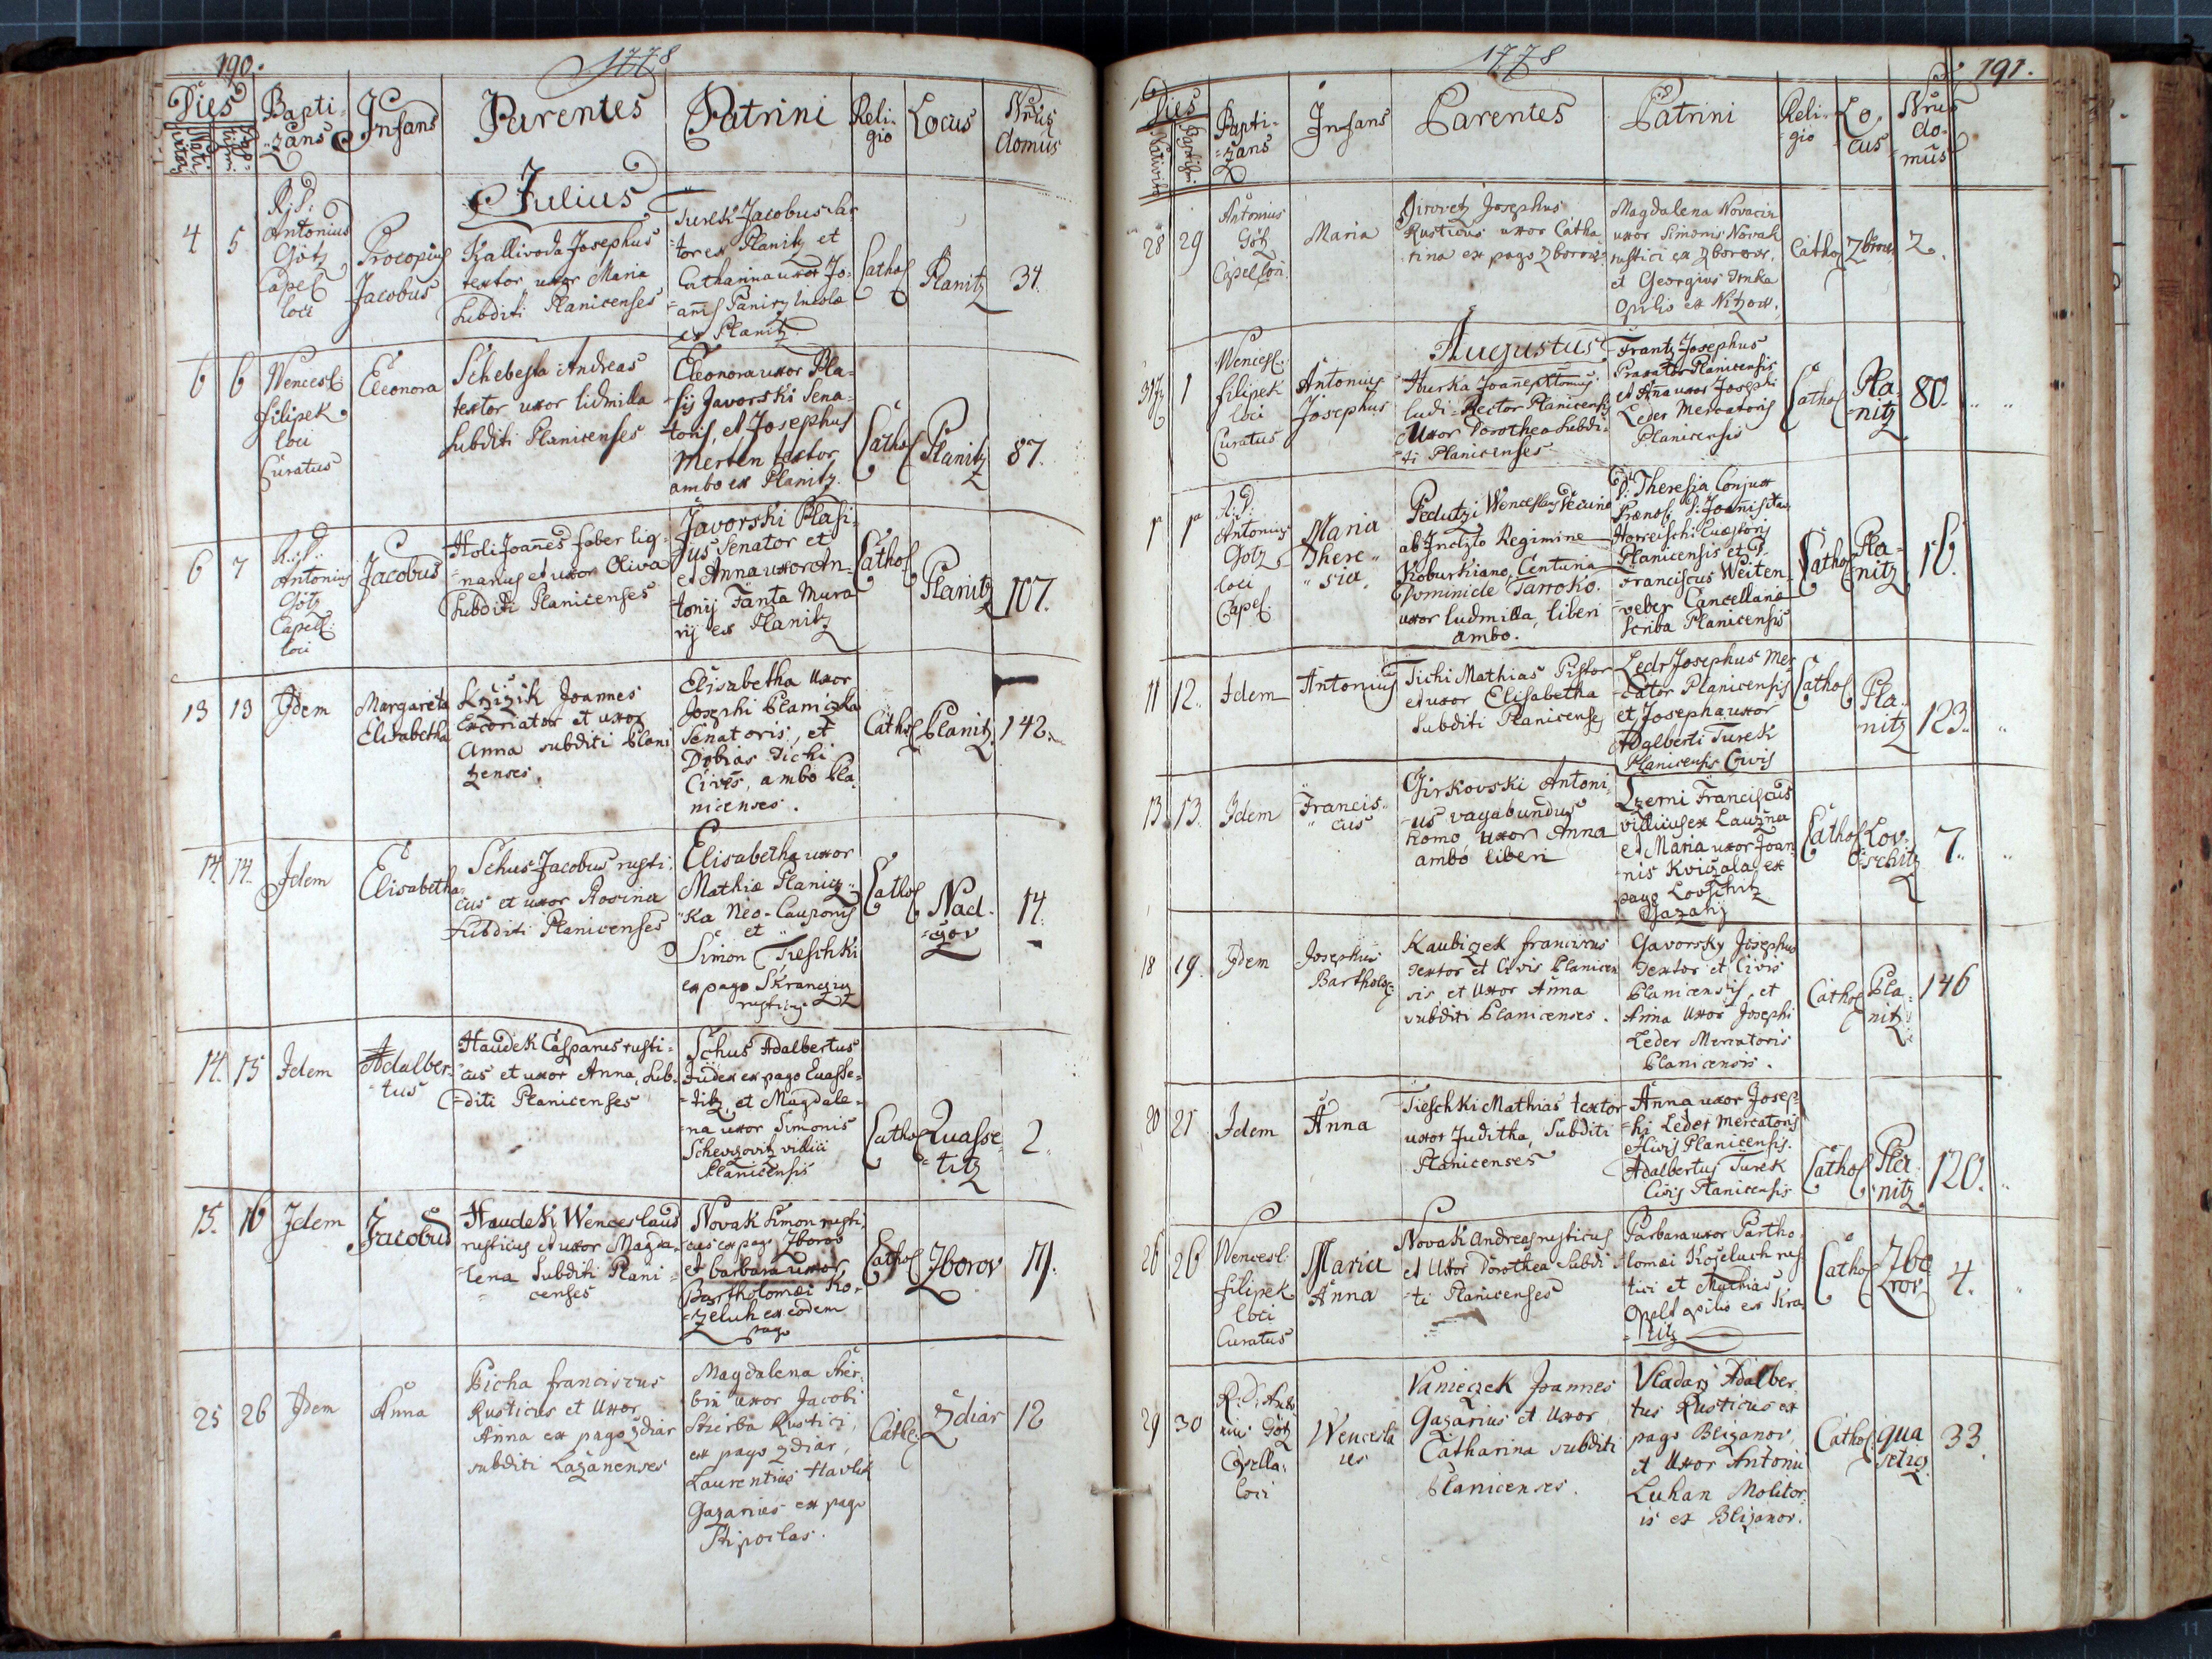 190.
1778
Dies
Nativitatis
Baptismi
Bapti-
zans
Infans
Parentes
Patrini
Reli-
gio
Locus
Nrus
domus
Julius
4
5
R: P:
Antonius
Götz
Capel
loci
Procopius
Jacobus
Kzallivoda Josephus
textor uxor Maria
Subditi Planicenses
Turek Jacobus
tor ex Planitz et
Catharina uxor Jo-
ex Planitz
Cathol
Planitz
34.
6
6
Wencesl:
Filipek
loci
Curatus
Eleonora
Schebesta Andreas
textor uxor Lidmilla
Subditi Planicenses
Eleonora uxor Bla-
sij Javorski Sena-
toris, et Josephus
Merten textor
ambo ex Planitz.
Cathol
Planitz
87.
6
7
R: P:
Antonius
Götz
Capell:
loci
Jacobus
Holi Joanes faber lig-
narius et uxor Oliva
Subditi Planicenses
Javorski Blasi-
us Senator et
et Anna uxor An-
tonij Fanta Mura
rij ex Planitz
Cathol
Planitz
107.
13
13
Idem
Margareta
Elisabetha
Kzizik Joannes
Excoriator et uxor
Anna subditi Plani
zenses.
Elisabetha uxor
Josephi Planiczka
Senatoris, et
Dobias Tichi
Cives, ambo Pla
nicenses.
Cathol
Planitz
142.
14.
14.
Idem
Elisabetha
Schus Jacobus rusti-
cus et uxor Rosina
Subditi Planicenses
Elisabetha uxor
Mathiæ Planicz-
ka Neo-Cauponis
et
Simon Tieschki
ex pago Skranczicz
rusticus
Cathol
Nad-
gov
14.
14.
15
Idem
Adalber-
tus
Haudek Casparus rusti-
cus et uxor Anna, Sub-
diti Planicenses
Schus Adalbertus
Judex ex pago Quasse-
titz et Magdale-
na uxor Simonis
Schevzovitz villici
Planicensis
Cathol
Quasse-
titz
2.
15.
16
Idem
Jacobus
Haudek Wenceslaus
rusticus et uxor Magda-
lena Subditi Plani-
censes
Novak Simon rusti-
cus ex pago Zborov
et barbara uxor
Bartholomæi Ko-
zeluh ex eodem
pago
Cathol
Zborov
11.
25
26
Idem
Anna
Picha franciscus
Rusticus et Uxor
Anna ex pago Zdiar
subditi Lazanenses
Magdalena Stier-
bin uxor Jacobi
Stierba Rustici,
ex pago Zdiar,
Laurentius Havlik
Gazarius ex pago
Stipoclas.
Cathl:
Zdiar
12
1778
191.
Dies
Nativit
Baptismi
Bapti-
zans
Infans
Parentes
Patrini
Reli-
gio
Lo-
cus
Nrus
do-
mus
28
29
Antonius
Götz
Capel loci
Maria
Jirovetz Josephus
Rusticus uxor Catha
rina ex pago Zborow
Magdalena Novacin
uxor Simonis Novak
rustici ex Zborow,
et Georgius Trnka
Opilio ex Nitzow.
Cathol
Zborow
2.
Augustus
31
1
Wencesl:
filipek
loci
Curatus
Antonius
Josephus
Hurka Joanes Antonius
ludi-Rector Planicensis
Uxor Dorothea Subdi-
ti Planicenses
Frantz Josephus
Planicensis
et Ana uxor Josephi
Leder Mercatoris
Planicensis
Cathol
Pla-
nitz
80.
1
1
R: P:
Antonius
Götz
loci
Capel:
Maria
There-
sia.
Pedutzi Wenceslaus
ab Inclito Regimine
Koburkiano, Centuria
Dominicle Tarroko.
uxor ludmilla, liberi
ambo.
D: Theresia Conjux
Planicensis et
Franciscus Weiten-
veber Cancellariæ
Scriba Planicensis
Cathol
Pla-
nitz
16.
11
12.
Idem
Antonius
Tichi Mathias Pistor
et uxor Elisabetha
Subditi Planicenses
Ledr Josephus Mer-
cator Planicensis
et Josepha uxor
Adalberti Turek
Planicensis Civis
Cathol
Pla-
nitz
123.
13.
13.
Idem
Francis-
cus
Girkovski Antoni-
us vagabundus
homo uxor Anna
ambo liberi
Czerni Franciscus
villicus ex Lauzna
et Maria uxor Joan-
nis Kviczala ex
pago Lovtschitz
Gazarij
Cathol
Lov-
tschitz
7.
18
19.
Idem
Josephus
Barthol
Kaubiczek franciscus
Textor et Civis Planicen
sis et Uxor Anna
subditi Planicenses.
Gavorsky Josephus
Textor et Civis
Planicensis, et
Anna Uxor Josephi
Leder Mercatoris
Planicensis.
Cathol
Pla-
nitz
146
20
21
Idem
Anna
Tieschki Mathias textor
uxor Juditha, Subditi
Planicenses
Anna uxor Josep-
hi Leder mercatoris
Planicensis.
Adalbertus Turek
Civis Planicensis
Cathol
Pla-
nitz
120.
26
26
Wencesl:
filipek
loci
Curatus
Maria
Anna
Novak Andreas rusticus
et Uxor Dorothea Subdi
ti Planicenses
Barbara uxor Bartho-
lomæi Kozeluch rus
tici et Mathias
Opelt opilio ex Kra
nitz
Cathol
Zbo
rov
4.
29
30
R: D: Anto
nius Götz
Capella:
loci
Wencesla
us
Vanieczek Joannes
Gazarius et Uxor
Catharina subditi
Planicenses.
Vladarz Adalber-
tus Rusticus ex
pago Blizanov,
et Uxor Antonii
Luhan Molitor-
is ex Blizanov.
Cathol:
qua
seticz
33